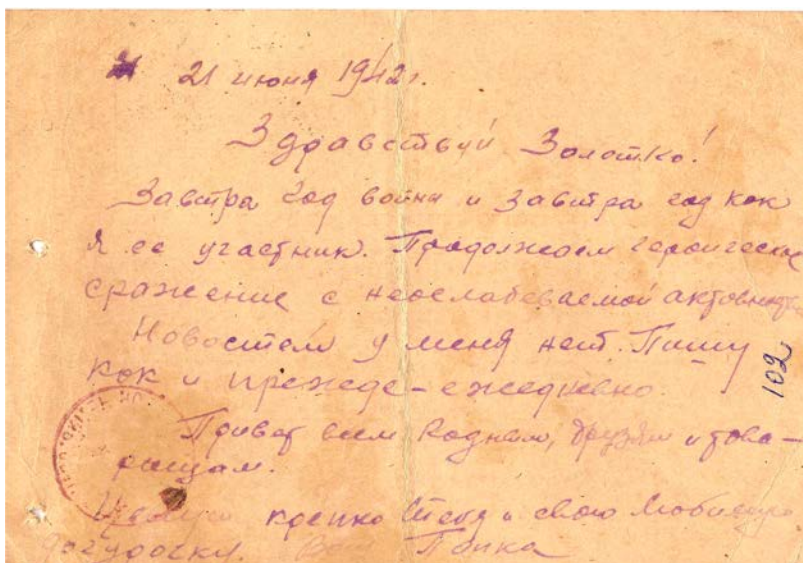 21 июня 1942г.
Здравствуй Золотко!
Завтра год войны и завтра год как
я ее участник. Продолжаем героическое
сражение с неослабеваемой активностью
Новостей у меня нет. Пишу
как и прежде - ежедневно.
Привет всем родным, друзьям и това-
рищам.
Целую крепко тебя и свою любимую
дочурочку. Ваш
102